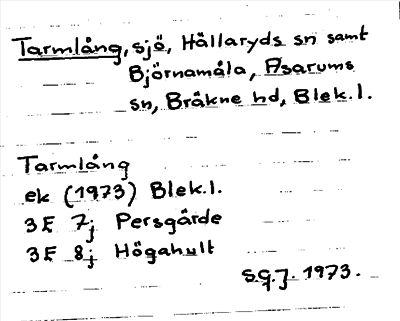 Tarmlång, sjö, Hällaryds sn samt
Björnamåla, Asarums
sn, Bräkne hd, Blek.l.
Tarmlång
ek (1973) Blek.l.
3E 7j Persgärde
3E 8j Högahult
S.G.J. 1973.